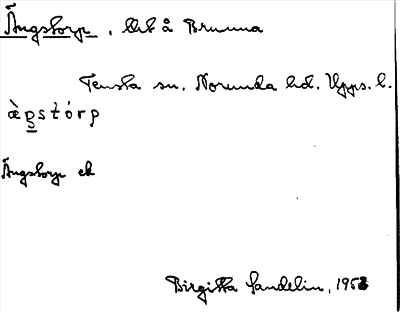 Ängstorp, Urb å Brunna
Tensta sn. Norunda hd. Upps. l.
ὰp̲stórp
Ängstorp ek
Birgitta Sandelin, 1953